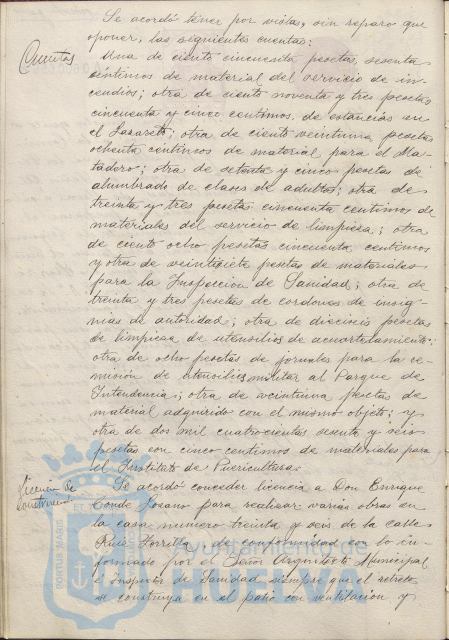 Se acordó tener por vistas, sin reparo que
oponer, las siguientes cuentas:
Cuentas
Una de ciento cincuenta pesetas, sesenta
céntimos de material del servicio de in-
cendios; otra de ciento noventa y tres pesetas
cincuenta y cinco centimos, de estancias en
el Lazareto; otra de ciento veintiuna pesetas
ochenta céntimos de material para el Ma-
tadero; otra de setenta y cinco pesetas de
alumbrado de clases de adultos; otra de
treinta y tres pesetas cincuenta centimos de
materiales del servicio de limpieza; otra
de ciento ocho pesetas cincuenta centimos
y otra de veintisiete pesetas de materiales
para la Inspeccion de Sanidad; otra de
treinta y tres pesetas de cordones de insig-
nias de autoridad; otra de dieciseis pesetas
de limpieza de utensilios de acuartelamiento;
otra de ocho pesetas de jornales para la re-
mision de utensilios militar al Parque de
Intendencia; otra de veintiuna pesetas de
material adquirido con el mismo objeto; y
otra de dos mil cuatrocientas sesenta y seis
pesetas con cinco centimos de materiales para
el Instituto de Puericultura.
Licencia de
construcción
Se acordó conceder licencia a Don Enrique
Conde Lozano para realizar varias obras en
la casa numero treinta y seis de la calle
Ruiz Zorrilla, de conformidad con lo in-
formado por el Señor Arquitecto Municipal
e Inspector de Sanidad siempre que el retrete
se construya en el patio con ventilacion y
Ayuntamiento de
PORTUS MARIS